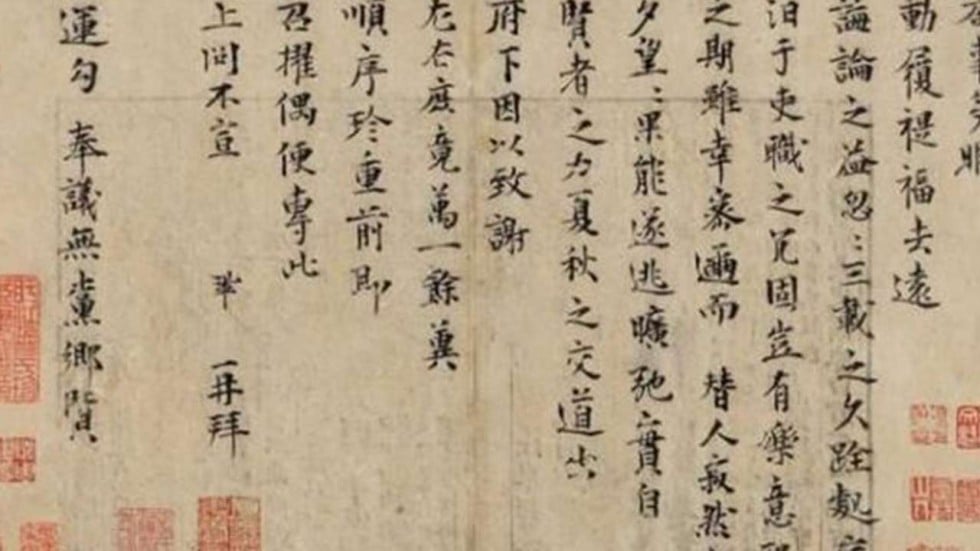 動履禔福去遠
誨論之益忽〻三載之久跧處
汩于吏職之冗固豈有樂意
之期雖幸密邇而 替人寂然
夕望〻果能遂逃曠弛實自
賢者之力夏秋之交道出
府下因以致謝
左右庶竟萬一餘冀
順序珍重前即
召擢偶便專此
上問不宣 鞏 再拜
運勾 奉議無黨鄉賢